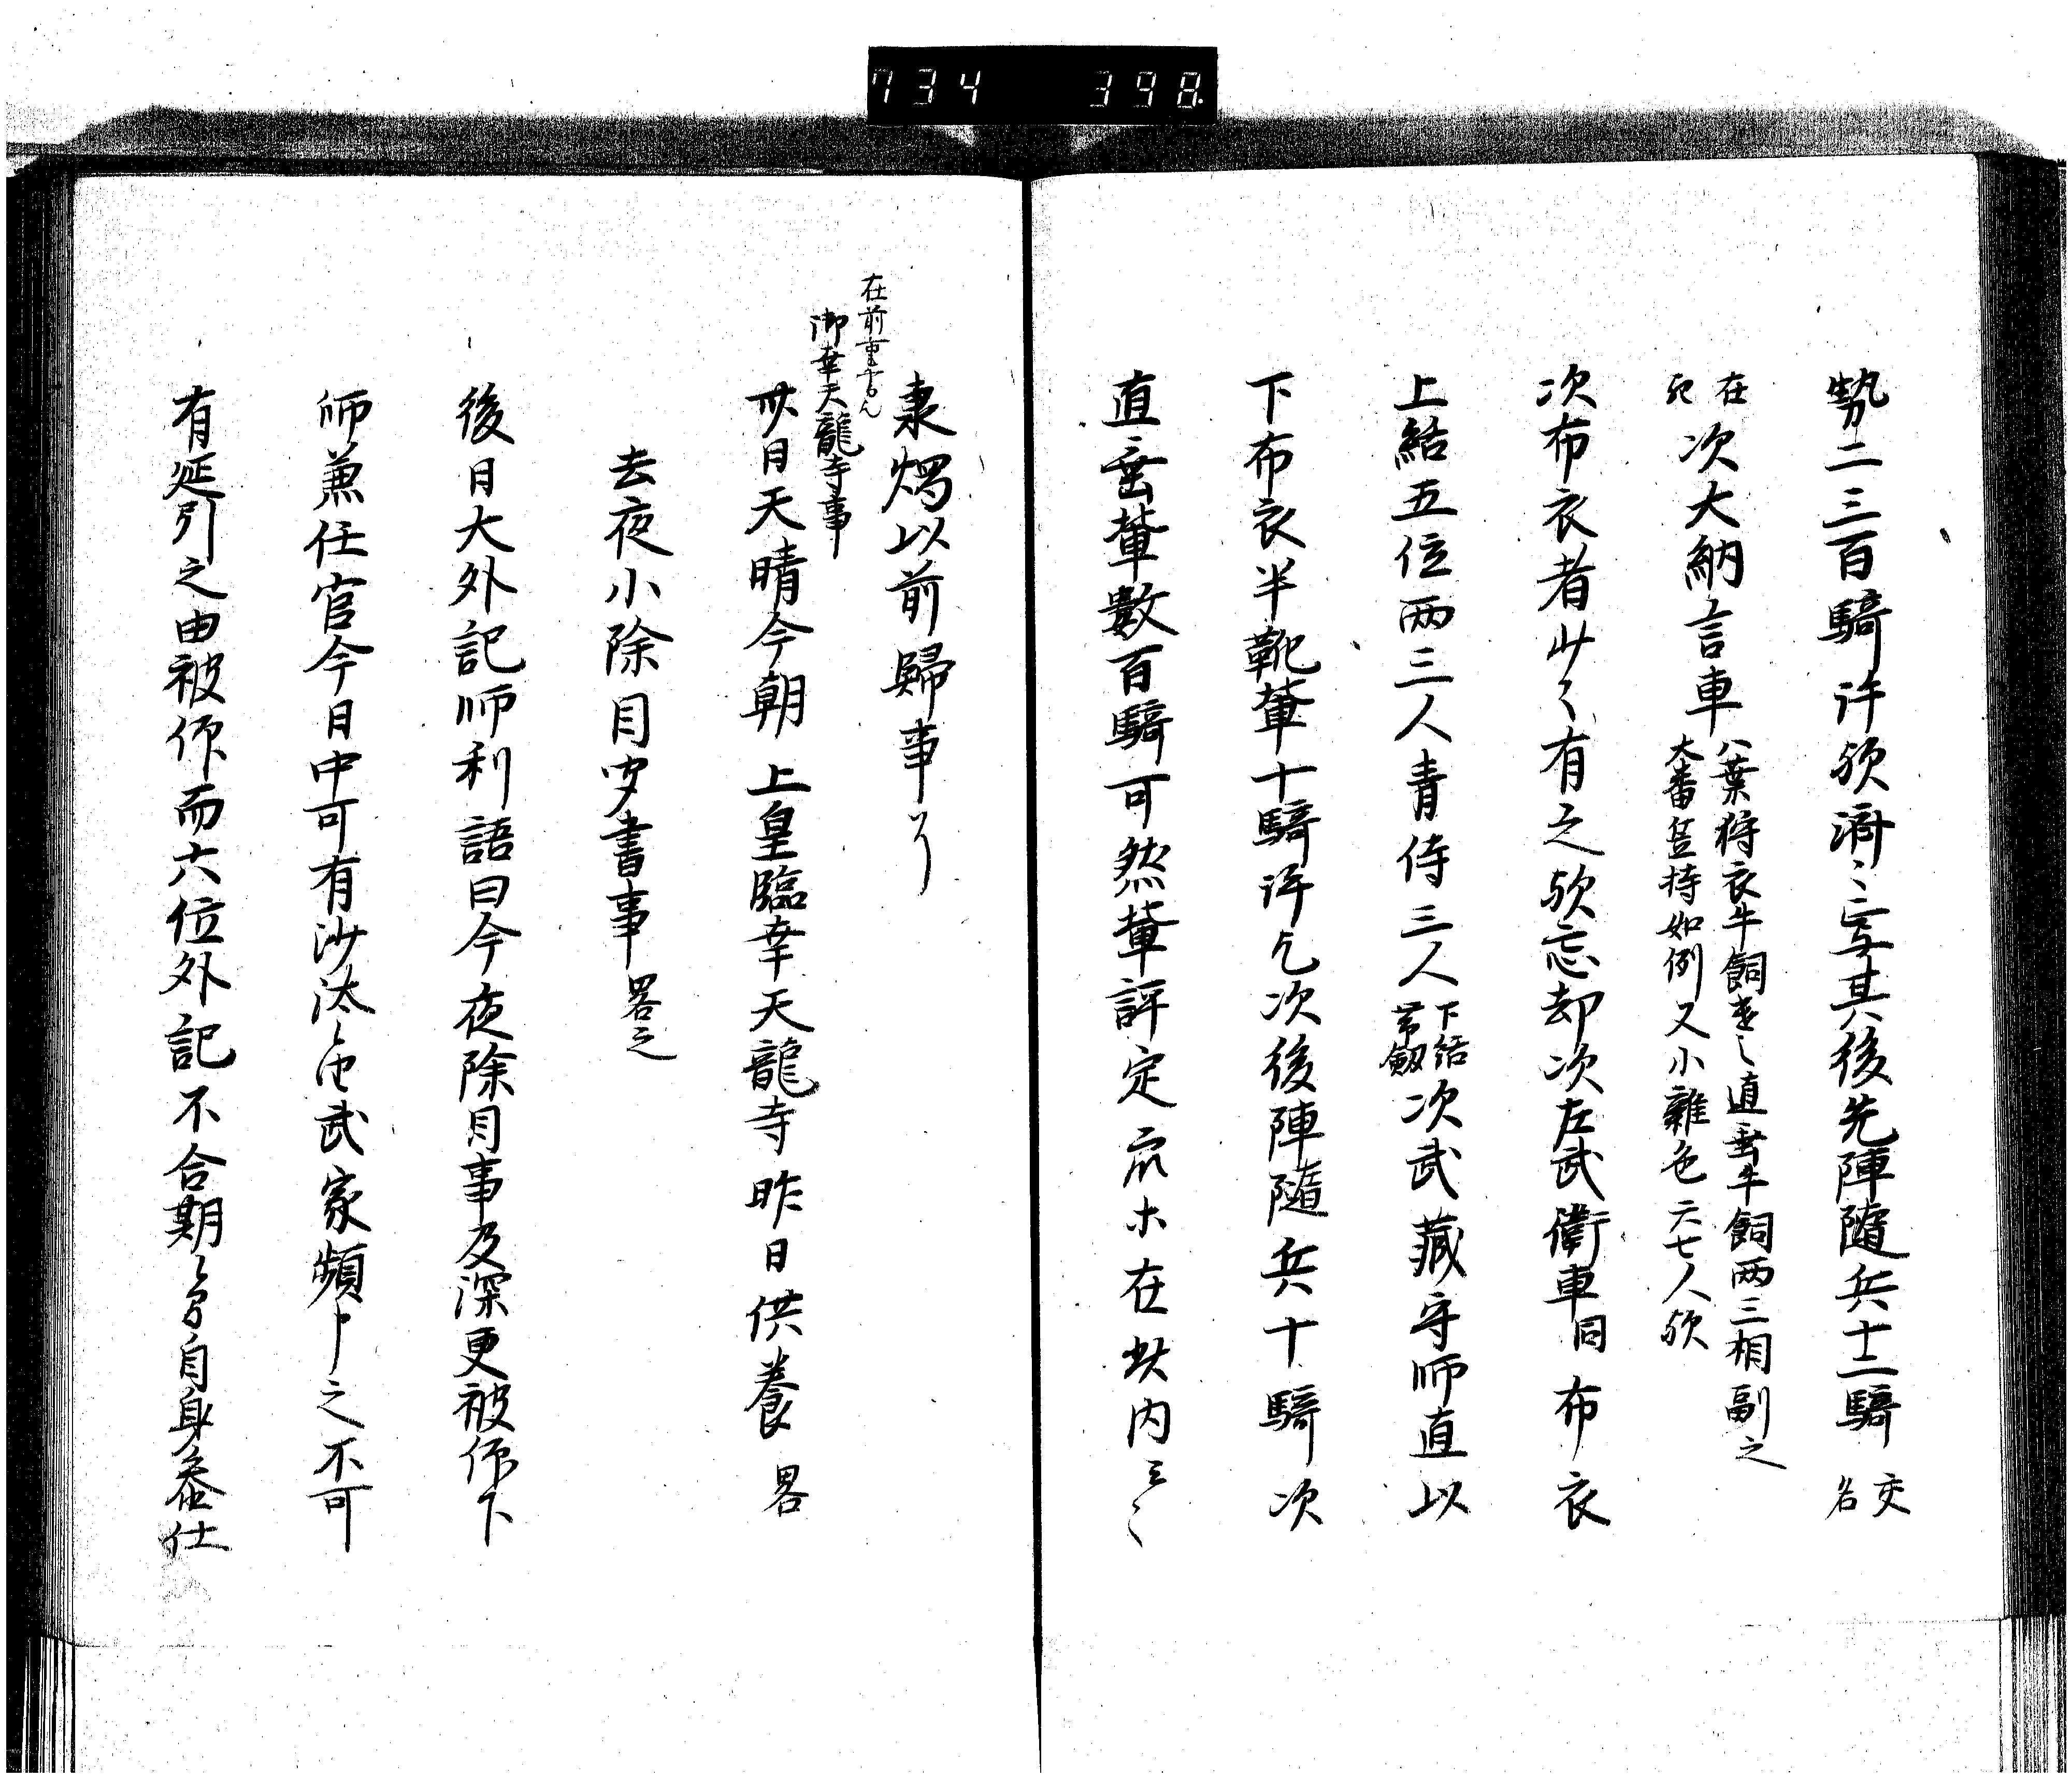 734 398
勢二三百騎許歟済々其後先陣随兵十二騎 交名
在
次大納言車 八葉狩衣牛飼直垂牛飼両三相副之
大番竪持如例又小雑色六七人歟
次布衣者少々有之歟忘却次左武衛車同布衣
上結五位両三人青侍三人 下結
帯劔 次武蔵守師直以
下布衣半靴輩十騎許乞次後陣随兵十騎次
直垂輩数百騎可然輩評定衆木在此内云々
秉燭以前歸事了
在前
御幸天龍寺事
卅日天晴今朝 上皇臨幸天龍寺昨日供養 畧
去夜小除目聞書事 畧之
後日大外記師利語曰今夜除目事及深更被仰下
師兼任官今日中可有沙汰之由武家頻申之不可
有延引之由被仰而六位外記不合期之間自身参仕